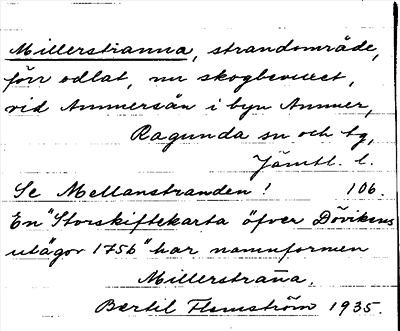 Millerstranna, strandområde,
förr odlat, nu skogbevuxet,
vid Ammersån i byn Ammer,
Ragunda sn och tg,
Jämtl. l.
Se Mellanstranden! 106.
En "Storskiftekarta öfver Dövikens
utägor 1756" har namnformen
Millerstrana̅.
Bertil Flemström 1935.